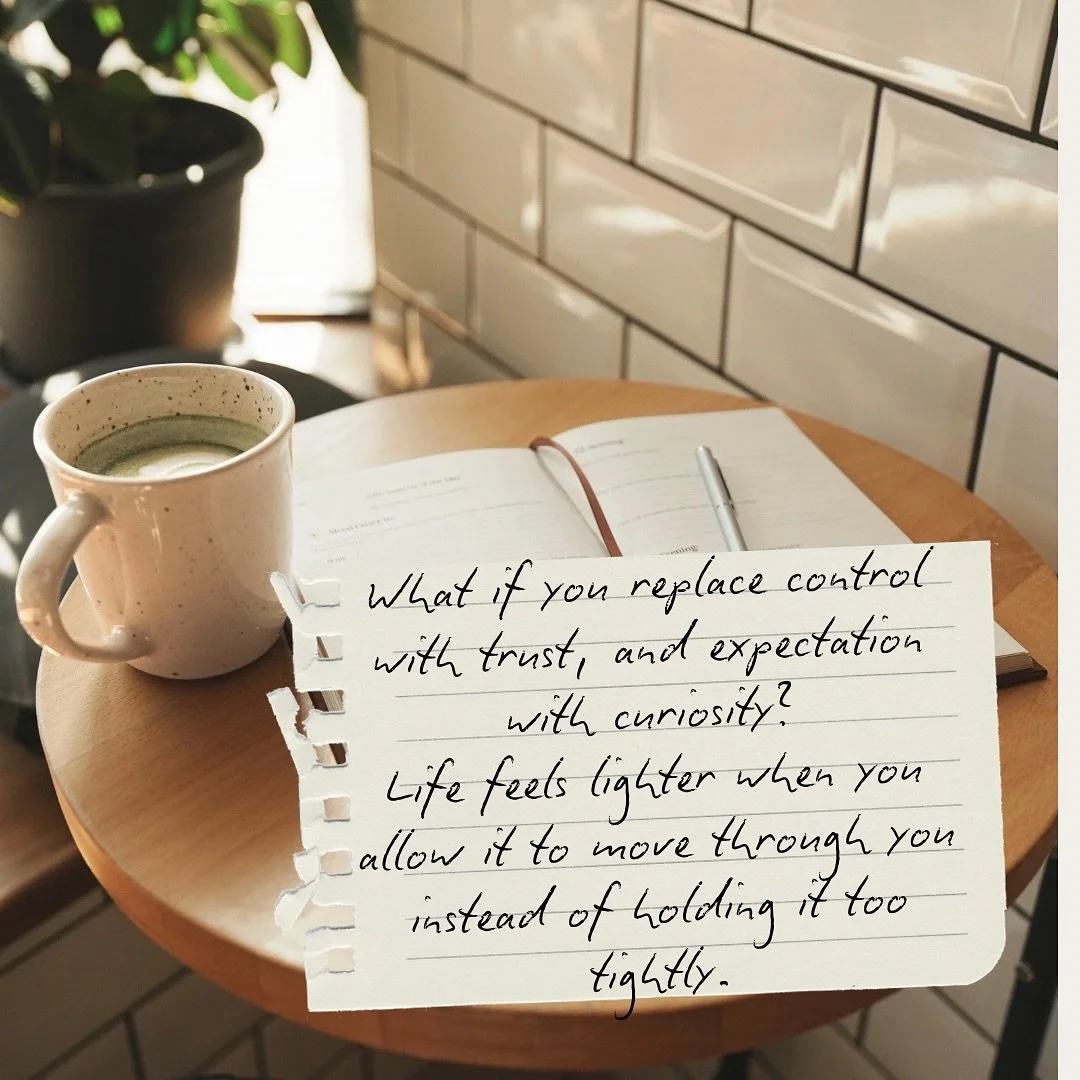 What if you replace control
with trust, and expectation
with curiosity?
Life feels lighter when you
allow it to move through you
instead of holding it too
tightly.